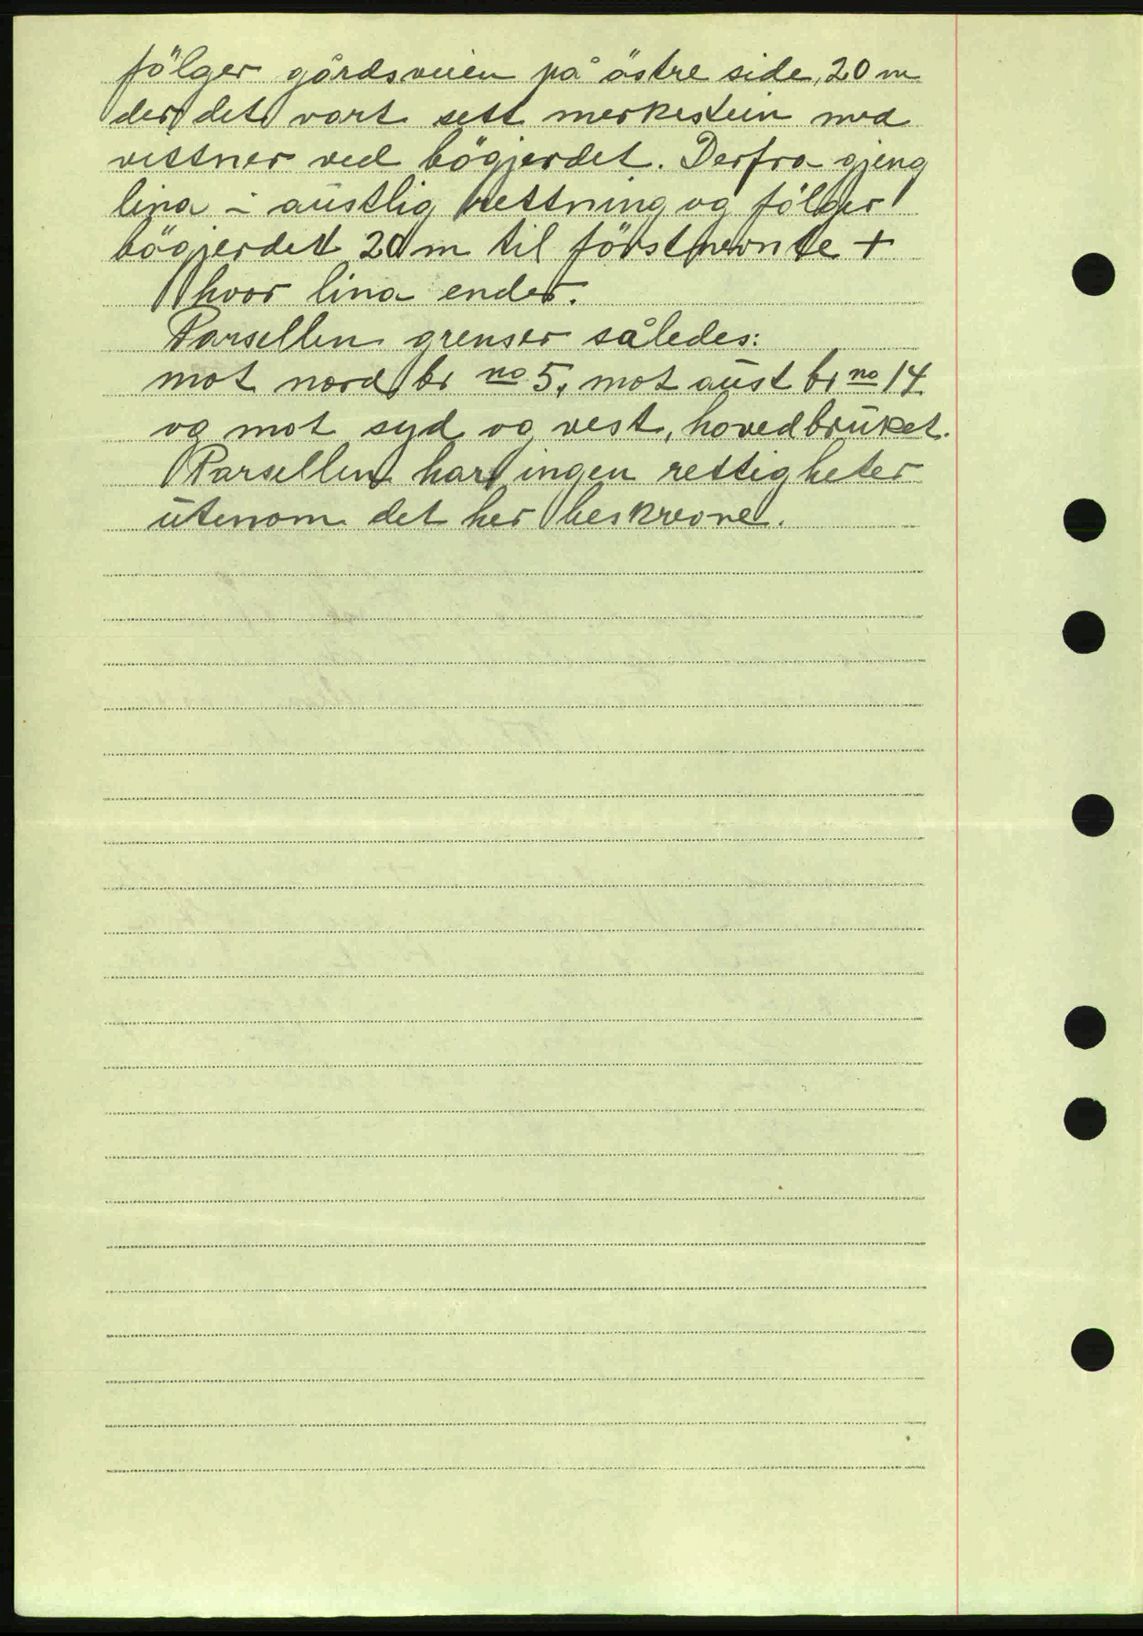 fölger gårdsveien på östre side, 20 m
der det vart sett merkestein med
vittner ved bögjerdet. Derfra gjeng
lina i austlig rettning og fölger
bögjerdet 20 m til förstnevnte +
hvor lina ender.
Parsellen grenser således:
mot nord br no 5, mot aust br no 14
og mot syd og vest, hovedbruket.
Parsellen har ingen rettigheter
utenom det her beskrevne.